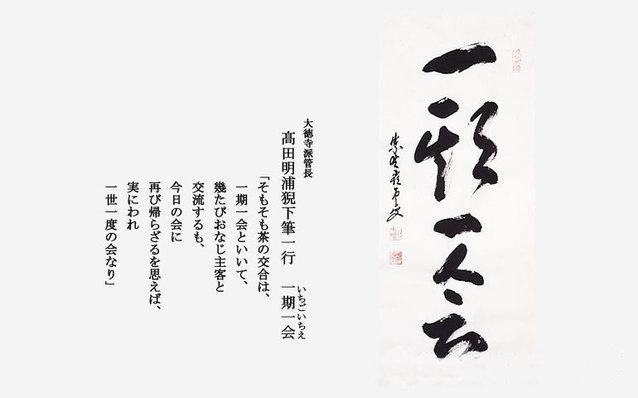 一期一会
大徳寺派管長
高田明浦猊下筆一行　一期一会
いちごいちえ
「そもそも茶の交合は、
一期一会といいて、
幾たびおなじ主客と
交流するも、
今日の会に
再び帰らざるを思えば、
実にわれ
一世一度の会なり」